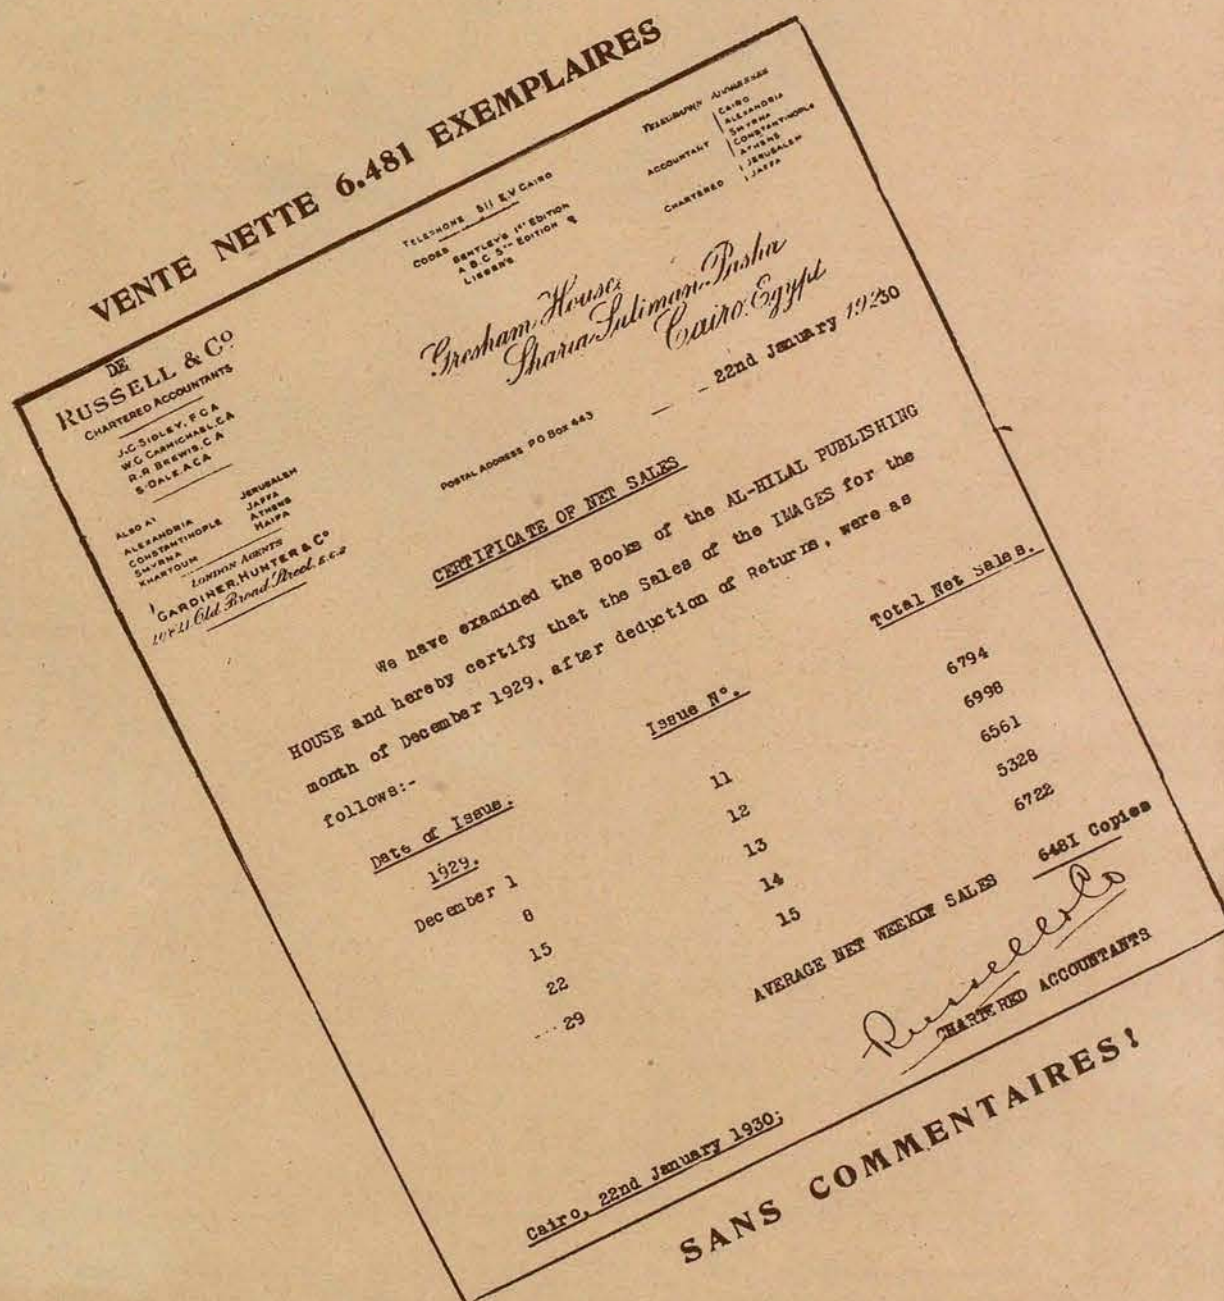 VENTE NETTE 6.481 EXEMPLAIRES
DE
RUSSELL & Co
CHARTERED ACCOUNTANTS
J.C. SIDLEY, F.C.A
W.C. CARMICHAEL, C.A
R.R BREWIS, C.A
S. DALE, A.C.A
ALSO AT
ALEXANDRIA JERUSALEM
CONSTANTINOPLE JAFFA
SMYRNA ATHENS
KHARTOUM HAIFA
LONDON AGENTS
GARDINER, HUNTER & Co
Old Broad Street, E.C.2
TELEPHONE 511 E.V CAIRO
CODES BENTLEY'S 1ST EDITION
A B.C 5TH EDITION &
LIEBER'S
TELEGRAPHIC ADDRESSES
ACCOUNTANT CAIRO
ALEXANDRIA
SMYRNA
CONSTANTINOPLE
ATHENS
CHARTERED JERUSALEM
JAFFA
Gresham House,
Sharia Suliman Pasha
Cairo. Egypt
22nd January 1930
POSTAL ADDRESS P O BOX 443
CERTIFICATE OF NET SALES
We have examined the Books of the AL-HILAL PUBLISHING
HOUSE and hereby certify that the Sales of the IMAGES for the
month of December 1929, after deduction of Returns, were as
follows:-
Date of Issue. Issue No. Total Net Sales.
1929.
December 1 11 6794
8 12 6998
15 13 6561
22 14 5328
29 15 6722
AVERAGE NET WEEKLY SALES 6481 Copies
Russell & Co
CHARTERED ACCOUNTANTS
Cairo, 22nd January 1930;
SANS COMMENTAIRES!